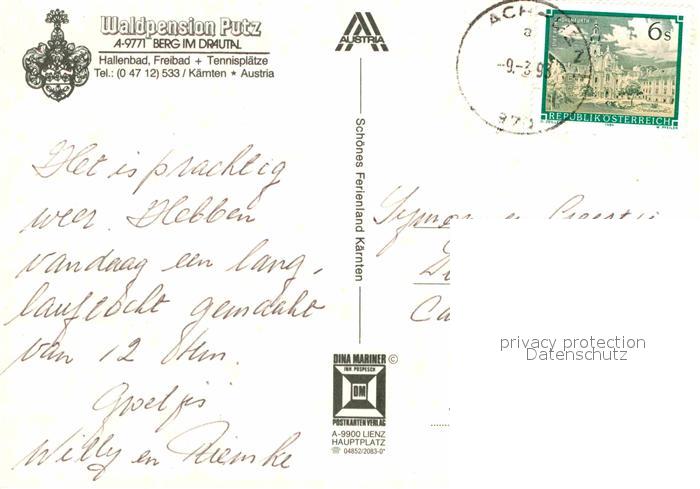 Waldpension Putz
A-9771 BERG IM DRAUTAL
Hallenbad, Freibad + Tennisplätze
Tel.: (0 47 12) 533 / Kärnten ★ Austria
AUSTRIA
ACH
a
-9.-3.93
6s
REPUBLIK ÖSTERREICH
Schönes Ferienland Kärnten
Het is prachtig
weer. Hebben
vandaag een lang,
lauftocht gemaakt
van 12 Km.
Groetjes
Willy en Riemke
Symon en Geertje
Ca
privacy protection
Datenschutz
DINA MARINER ©
INH POSPESCH
DM
POSTKARTENVERLAG
A-9900 LIENZ
HAUPTPLATZ
☎ 04852/2083-0*